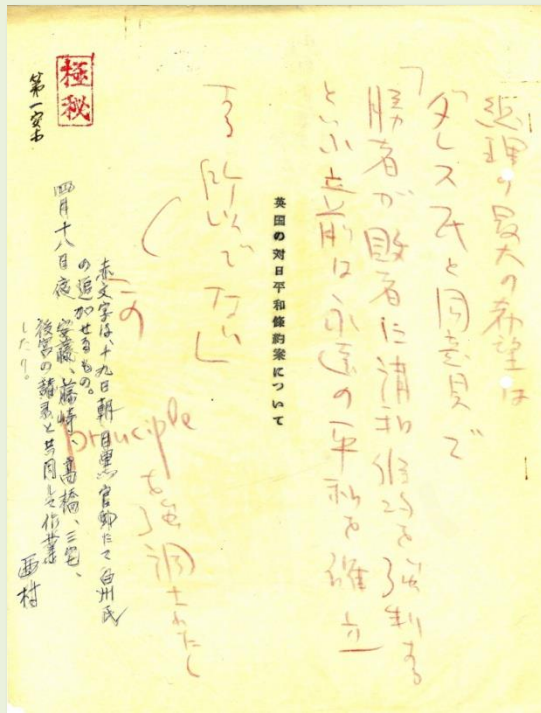 総理の最大の希望は
「ダレス氏と同意見で
勝者が敗者に講和條約を強制する
といふ立前は永遠の平和を確立
する所以でない」
この
principle
を強調されたし
英国の対日平和條約案について
極秘
第一安
赤文字は、十九日朝目黒官邸にて白州氏
の追加せるもの。
四月十八日夜
安藤、藤崎、高橋、三宅、
後宮の諸君と共同して作業
したり。
西村